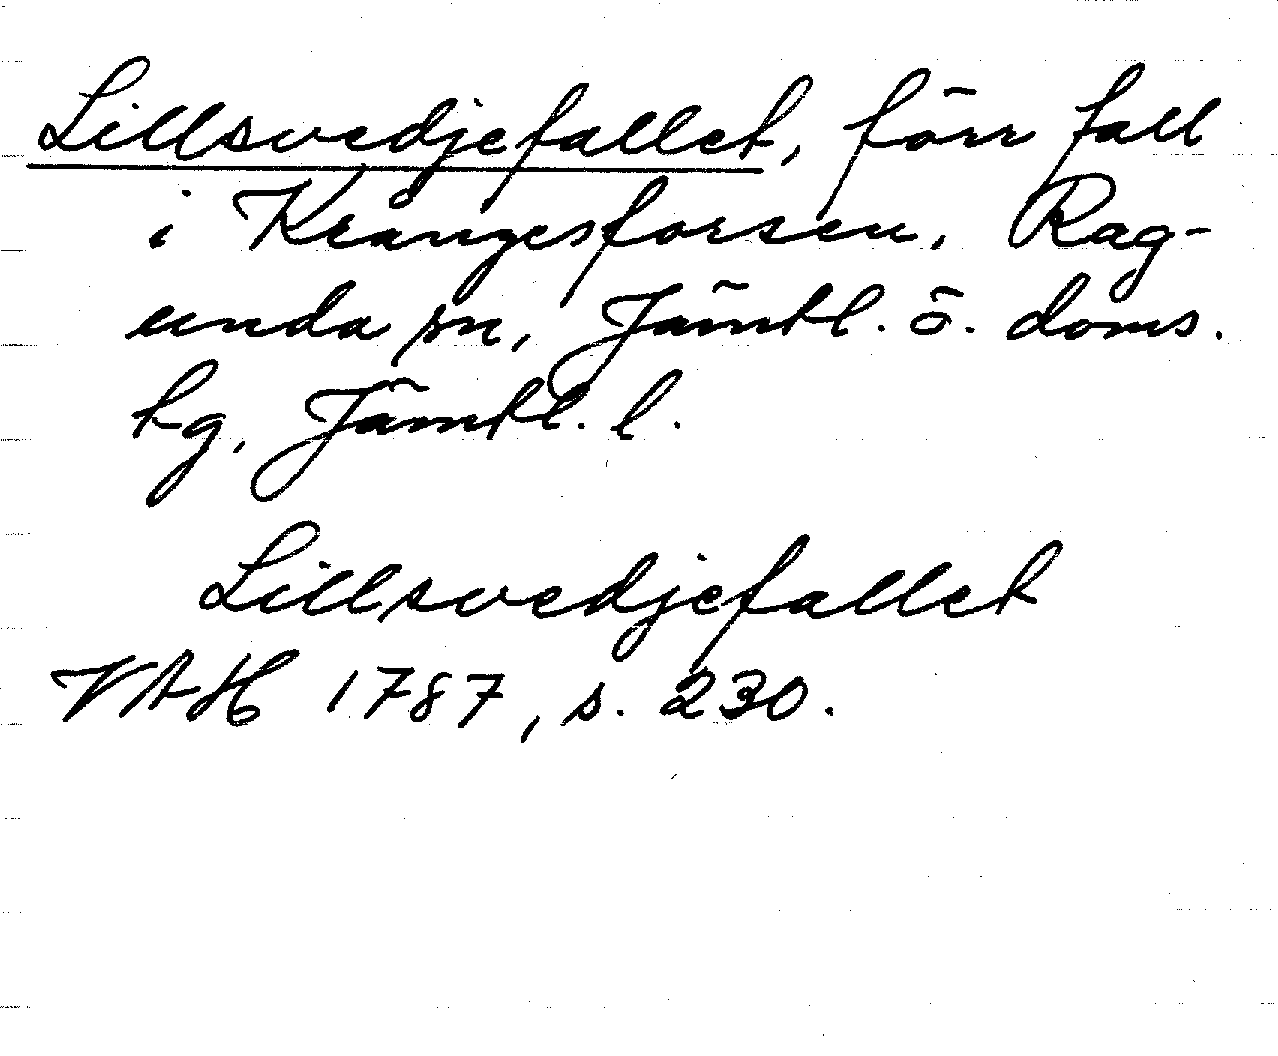 Lillsvedjefallet, förr fall
i Krångesforsen, Rag-
unda sn, Jämtl. ö. doms.
hg, Jämtl. l.
Lillsvedjefallet
VAH 1787, s. 230.